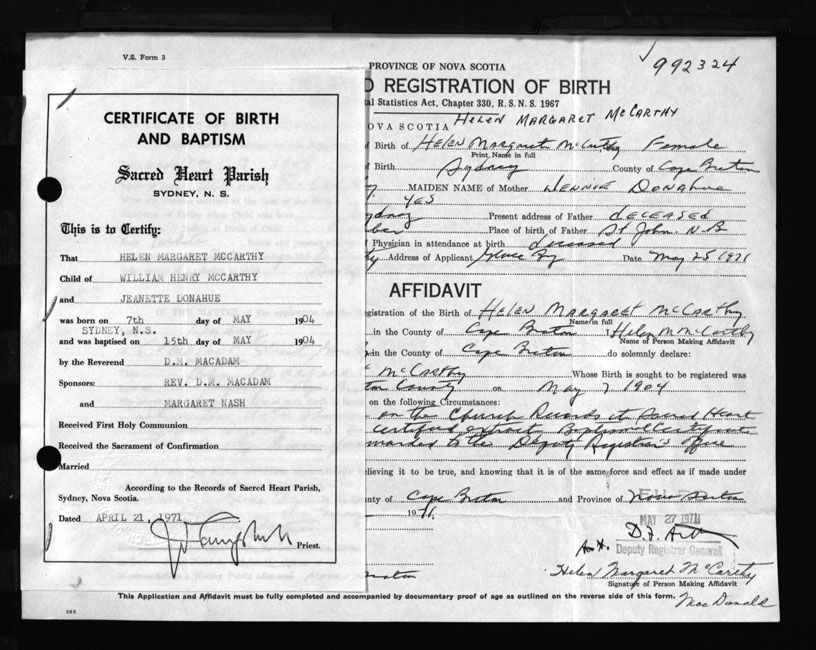 V.S. Form 3
CERTIFICATE OF BIRTH
AND BAPTISM
Sacred Heart Parish
SYDNEY, N. S.
This is to Certify:
That HELEN MARGARET MCCARTHY
Child of WILLIAM HENRY MCCARTHY
and JEANETTE DONAHUE
was born on 7th day of MAY 1904
SYDNEY, N.S.
and was baptised on 15th day of MAY 1904
by the Reverend D.M. MACADAM
Sponsors: REV. D.M. MACADAM
and MARGARET NASH
Received First Holy Communion
Received the Sacrament of Confirmation
Married
According to the Records of Sacred Heart Parish,
Sydney, Nova Scotia.
Dated APRIL 21, 1971
Priest.
PROVINCE OF NOVA SCOTIA
992324
D REGISTRATION OF BIRTH
al Statistics Act, Chapter 330, R. S. N. S. 1967
HELEN MARGARET McCARTHY
OVA SCOTIA
f Birth of Helen Margaret McCarthy Female
Print Name in full
f Birth Sydney County of Cape Breton
MAIDEN NAME of Mother Jennie Donahue
YES
ydney Present address of Father deceased
Place of birth of Father St John. N.B
f Physician in attendance at birth deceased
Address of Applicant Glace Bay Date May 25 1971
AFFIDAVIT
egistration of the Birth of Helen Margaret McCarthy
Name in full
in the County of Cape Breton I Helen M McCarthy
Name of Person Making Affidavit
in the County of Cape Breton do solemnly declare:
McCarthy Whose Birth is sought to be registered was
ton County on May 7 1904
on the following Circumstances:
on the Church Records at Sacred Heart
Certified extract Baptismal Certificate
warded to the Deputy Registrar's office
elieving it to be true, and knowing that it is of the same force and effect as if made under
nty of Cape Breton and Province of Nova Scotia
1971.
MAY 27 1971
Deputy Registrar General
Helen Margaret McCarthy
Signature of Person Making Affidavit
MacDonald
This Application and Affidavit must be fully completed and accompanied by documentary proof of age as outlined on the reverse side of this form.